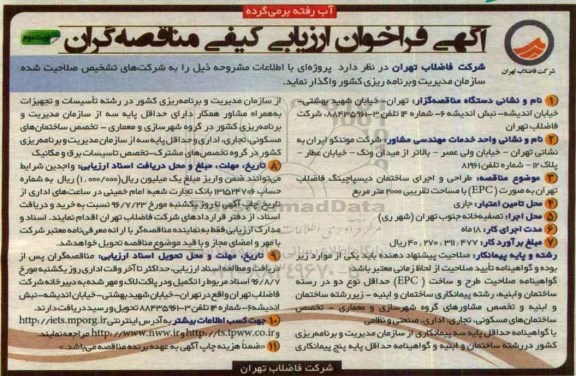 آب رفته برمی‌گرده
آگهی فراخوان ارزیابی کیفی مناقصه‌گران
نوبت دوم
شرکت فاضلاب تهران
شرکت فاضلاب تهران در نظر دارد پروژه‌ای با اطلاعات مشروحه ذیل را به شرکت‌های تشخیص صلاحیت شده
سازمان مدیریت وبرنامه ریزی کشور واگذار نماید.
۱ نام و نشانی دستگاه مناقصه‌گزار: تهران- خیابان شهید بهشتی-
خیابان اندیشه- نبش اندیشه ۶- شماره ۱۴ تلفن ۳-۸۸۴۳۵۹۶۱، شرکت
فاضلاب تهران
۲ نام و نشانی واحد خدمات مهندسی مشاور: شرکت مونتکو ایران به
نشانی تهران - خیابان ولی عصر - بالاتر از میدان ونک - خیابان عطار -
پلاک ۱۲ - شماره تلفن: ۸۱۹۶۱
۳ موضوع مناقصه: طراحی و اجرای ساختمان دیسپاچینگ فاضلاب
تهران به صورت (EPC) با مساحت تقریبی ۲۰۰۰ متر مربع
۴ محل تامین اعتبار: جاری
۵ محل اجرا: تصفیه‌خانه جنوب تهران (شهر ری)
۶ مدت اجرای کار: ۱۸ ماه
۷ مبلغ برآورد کار: ۴۰،۲۷۰،۳۱۱،۴۷۷ ریال
رشته و پایه پیمانکار: صلاحیت پیشنهاد دهنده باید یکی از موارد زیر
بوده و گواهینامه تأیید صلاحیت از لحاظ زمانی معتبر باشد
گواهینامه صلاحیت طرح و ساخت (EPC) حداقل نوع دو در رسته
ساختمان وابنیه، رشته پیمانکاری ساختمان و ابنیه - زیررشته ساختمان
و ابنیه و تخصص مشاورهای گروه شهرسازی و معماری - تخصص
ساختمان‌های مسکونی، تجاری، اداری، صنعتی و نظامی
یا گواهینامه حداقل پایه سه پیمانکاری از سازمان مدیریت و برنامه‌ریزی
کشور دررشته ساختمان و ابنیه و گواهینامه حداقل پایه پنج پیمانکاری
از سازمان مدیریت و برنامه‌ریزی کشور در رشته تأسیسات و تجهیزات
به‌همراه مشاور همکار دارای حداقل پایه سه از سازمان مدیریت و
برنامه‌ریزی کشور در گروه شهرسازی و معماری - تخصص ساختمان‌های
مسکونی، تجاری، اداری و حداقل پایه سه از سازمان مدیریت و برنامه‌ریزی
کشور در گروه تخصص‌های مشترک- تخصص تأسیسات برق و مکانیک
۸ تاریخ، مهلت، مبلغ و محل دریافت اسناد ارزیابی: واجدین شرایط
می‌توانند ضمن واریز مبلغ یک میلیون ریال (۱،۰۰۰،۰۰۰) ریال به شماره
حساب ۱۳۵۲۴۷۰۶ بانک تجارت شعبه امام خمینی در ساعت‌های اداری از
تاریخ چاپ آگهی تا روز یکشنبه مورخ ۹۶/۷/۲۳ نسبت به خرید و دریافت
اسناد، از دفتر قراردادهای شرکت فاضلاب تهران اقدام نمایند. اسناد و
مدارک ارزیابی فقط به نماینده مناقصه‌گر با ارائه معرفی‌نامه معتبر شرکت
با مهر و امضای مجاز و با قید موضوع مناقصه تحویل خواهدشد.
۹ تاریخ، مهلت و محل تحویل اسناد ارزیابی: مناقصه‌گران پس از
دریافت و مطالعه اسناد ارزیابی، حداکثر تا آخر وقت اداری روز یکشنبه مورخ
۹۶/۸/۷ اسناد مربوط را تکمیل ودر پاکت لاک و مهر شده به دبیرخانه شرکت
فاضلاب تهران واقع در تهران- خیابان شهید بهشتی- خیابان اندیشه- نبش
اندیشه ۶- شماره ۱۴ تلفن ۳-۸۸۴۳۵۹۶۱ تحویل و رسید دریافت دارند.
۱۰ جهت کسب اطلاعات بیشتر به آدرس اینترنتی http://iets.mporg.ir
http://ts.tpww.co.ir و http://www.nww.ir مراجعه نمایند.
۱۱ «ضمناً هزینه چاپ آگهی به عهده برنده مناقصه می‌باشد.»
شرکت فاضلاب تهران